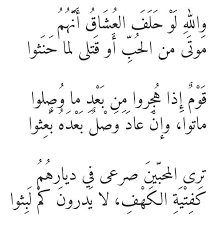 واللهِ لَوْ حَلَفَ العُشَّاقُ أَنَّهُمُ
موتَى من الحُبِّ أَو قَتلى لما حَنَثوا
قَوْمٌ إِذا هُجِروا مِن بَعْدِ ما وُصِلوا
ماتوا، وإنْ عادَ وَصْلٌ بَعْدَهُ بُعِثوا
ترى المحبّينَ صرعى في ديارِهُمُ
كَفِتْيَةِ الكَهْفِ، لا يَدرونَ كمْ لَبِثوا